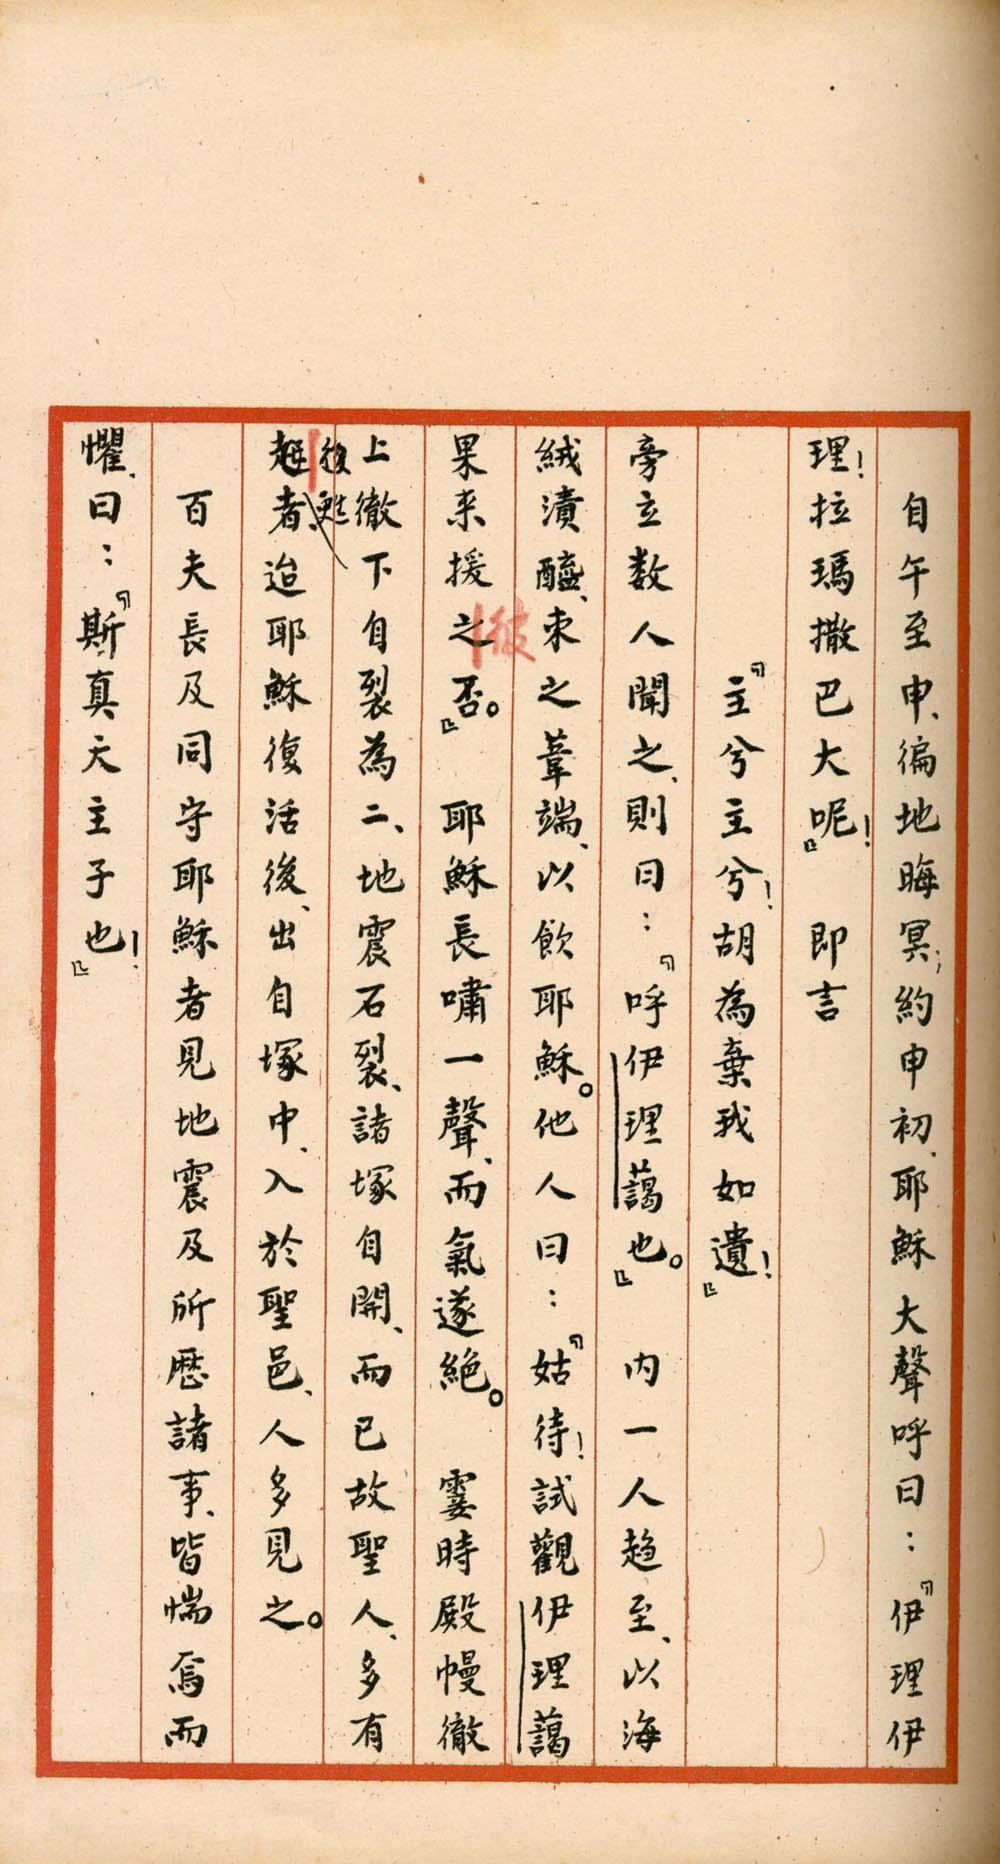 自午至申、徧地晦冥;約申初、耶穌大聲呼曰:『伊理伊
理!拉瑪撒巴大呢!』即言
『主兮主兮!胡為棄我如遺!』
旁立數人聞之、則曰:『呼伊理藹也。』內一人趋至、以海
絨漬醯、束之葦端、以飲耶穌。他人曰:『姑待!試觀伊理藹
果来援之彼否。』耶穌長嘯一聲、而氣遂絶。霎時殿幔徹
上徹下自裂為二、地震石裂、諸塚自開、而已故聖人、多有
復甦
起者、迨耶穌復活後、出自塚中、入於聖邑、人多見之。
百夫長及同守耶穌者見地震及所歷諸事、皆惴焉而
懼、曰:『斯真天主子也!』